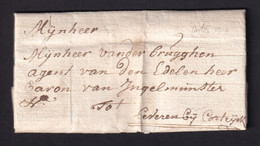 Mijnheer
Mijnheer vander brugghen
agent van den Edelen heer
baron van Ingelmunster
Tot
Cederen bij Cortryck